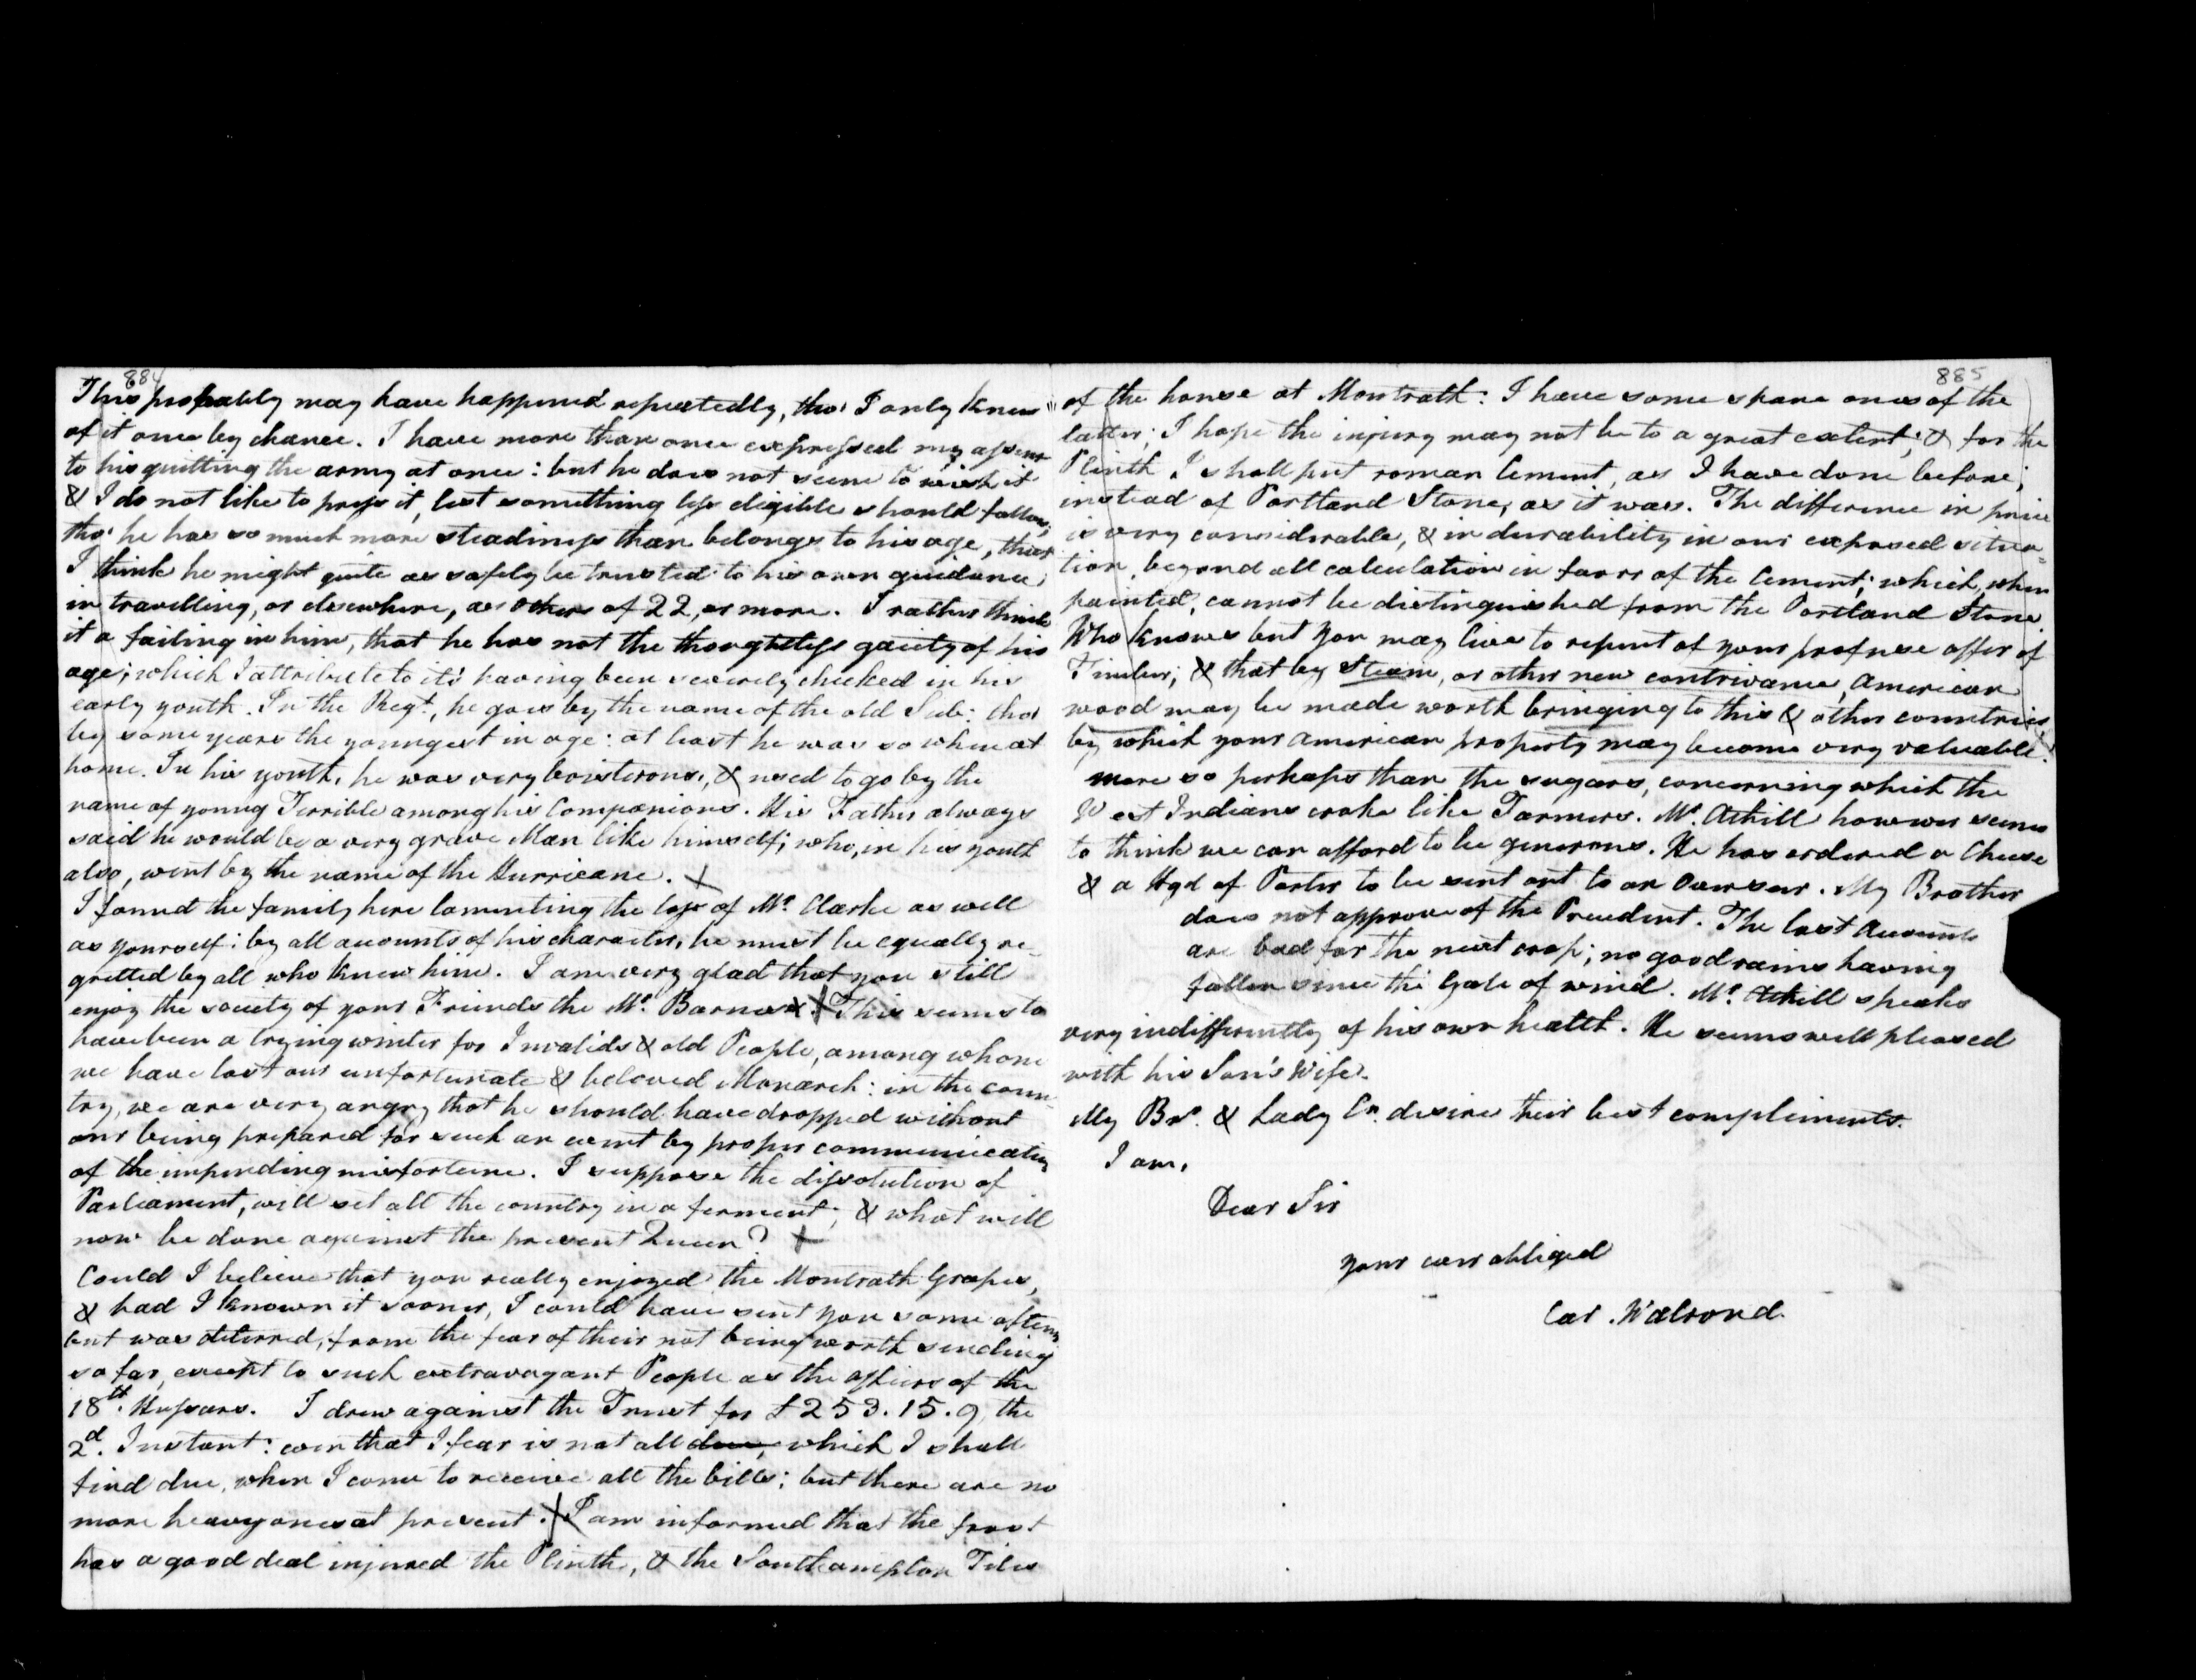 884
This probably may have happened repeatedly, tho' I only knew
of it once by chance. I have more than once expressed my assent
to his quitting the army at once: but he does not seem to wish it
& I do not like to press it, lest something less eligible should follow;
tho' he has so much more steadiness than belongs to his age, that
I think he might quite as safely be trusted to his own guidance
in travelling, or elsewhere, as others of 22, or more. I rather think
it a failing in him, that he has not the thoughtless gaiety of his
age; which I attribute to it's having been severely checked in his
early youth. In the Regt., he goes by the name of the old Sub: tho'
by some years the youngest in age: at least he was so when at
home. In his youth, he was very boisterous, & used to go by the
name of young Terrible among his Companions. His Father always
said he would be a very grave Man like himself; who, in his youth
also, went by the name of the Hurricane. X
I found the family here lamenting the loss of Mr. Clarke as well
as yourself: by all accounts of his character, he must be equally re-
gretted by all who knew him. I am very glad that you still
enjoy the society of your Friends the Mr. Barnes. X This seems to
have been a trying winter for Invalids & old People, among whom
we have lost our unfortunate & beloved Monarch: in the coun-
try, we are very angry that he should have dropped without
our being prepared for such an event by proper communication
of the impending misfortune. I suppose the dissolution of
Parliament, will set all the country in a ferment; & what will
now be done against the present Queen? X
Could I believe that you really enjoyed the Montrath Grapes,
& had I known it sooner, I could have sent you some often;
but was deterred, from the fear of their not being worth sending
so far, except to such extravagant People as the officers of the
18th. Hussars. I drew against the Trust for £253.15.9, the
2d. Instant: even that I fear is not all due, which I shall
find due, when I come to receive all the bills; but there are no
more heavy ones at present. X I am informed that the frost
has a good deal injured the Plinth, & the Southampton Tiles
885
of the house at Montrath: I have some spare ones of the
latter; I hope the injury may not be to a great extent; & for the
Plinth I shall put roman Cement, as I have done before;
instead of Portland Stone, as it was. The difference in price
is very considerable, & in durability in our exposed situa=
tion, beyond all calculation in favor of the Cement; which, when
painted, cannot be distinguished from the Portland Stone.
Who knows but you may live to repent of your profuse offer of
Timber; & that by Steam, or other new contrivance, American
wood may be made worth bringing to this & other countries,
by which your American property may become very valuable:
more so perhaps than the sugars, concerning which the
West Indians croke like Farmers. Mr. Athill however seems
to think we can afford to be generous. He has ordered a Cheese
& a Hgd of Porter to be sent out to an Overseer. My Brother
does not approve of the Precedent. The last Accounts
are bad for the next crop; no good rains having
fallen since the Gale of wind. Mr. Athill speaks
very indifferently of his own health. He seems well pleased
with his Son's Wife.
My Br. & Lady Cn. desire their best compliments.
I am,
Dear Sir
your ever obliged
Car. Walrond.